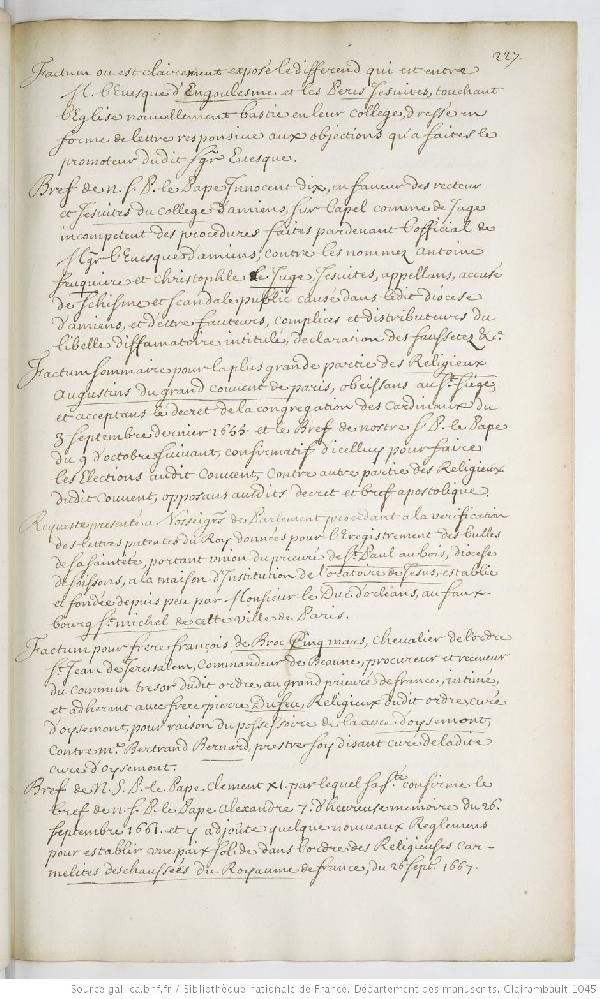 227.
Factum ou est clairement exposé le differend qui est entre
M. l'Euesque d'Engoulesme et les Peres Jesuites, touchant
l'Eglise nouuellement bastie en leur college, dressé en
forme de lettre responsiue aux objections qu'a faites le
promoteur dudit Sgr. Euesque.
Bref de N. S. P. le Pape Innocent dix, en faueur des recteur
et Jesuites du college d'amiens, sur l'apel comme de Juge
incompetent des procedures faites pardeuant l'official de
Mgr. l'Euesque d'amiens, contre les nommez Antoine
fuquiere et Christophle le Juge Jesuites, appellans, accusé
de schisme et scandale public causé dans ledit diocese
d'amiens, et d'estre fauteurs, complices et distributeurs du
libelle diffamatoire intitulé, declaration des faussetez &c.
Factum sommaire pour la plus grande partie des Religieux
Augustins du grand couuent de paris, obeissans au St. Siege
et acceptans le decret de la congregation des Cardinaux du
3 Septembre dernier 1655. et le Bref de nostre S. P. le Pape
du 9 d'octobre suiuant, confirmatif d'icelluy pour faire
les Elections audit Couuent, contre autre partie des Religieux
dudit couuent, opposans ausdits decret et bref apostolique.
Requeste presentée a Nosseigrs. de Parlement procedant a la verification
des lettres patentes du Roy données pour l'Enregistrement des bulles
de sa sainteté, portant union du prieuré de St. Paul au bois, diocese
de soissons, a la maison d'Institution de l'oratoire de Jesus, establie
et fondée depuis peu par Monsieur le Duc d'orleans, au faux-
bourg St. michel de cette ville de Paris.
Factum pour frere françois de Broc Cinq mars, cheualier de l'ordre
St. Jean de Jerusalem, Commandeur de Beaune, procureur et receueur
du commun tresor dudit ordre, au grand prieuré de france, intimé,
et adherant auec frere pierre Dufeu, Religieux dudit ordre, curé
d'oysemont, pour raison du possessoire de la cure d'oysemont,
contre me. Bertrand Bernard, prestre soy disant curé de ladite
cure d'oysemont.
Bref de N. S. P. le Pape Clement XI. par lequel sa Ste. confirme le
bref de n. S. P. le Pape alexandre 7. d'heureuse memoire du 26.
septembre 1661. et y adjoute quelque nouueaux Reglemens
pour establir une paix solide dans l'ordre des Religieuses Car-
melites deschaussées du Royaume de france, du 26 Sept. 1667.
Source gallica.bnf.fr / Bibliothèque nationale de France. Département des manuscrits. Clairambault 1045